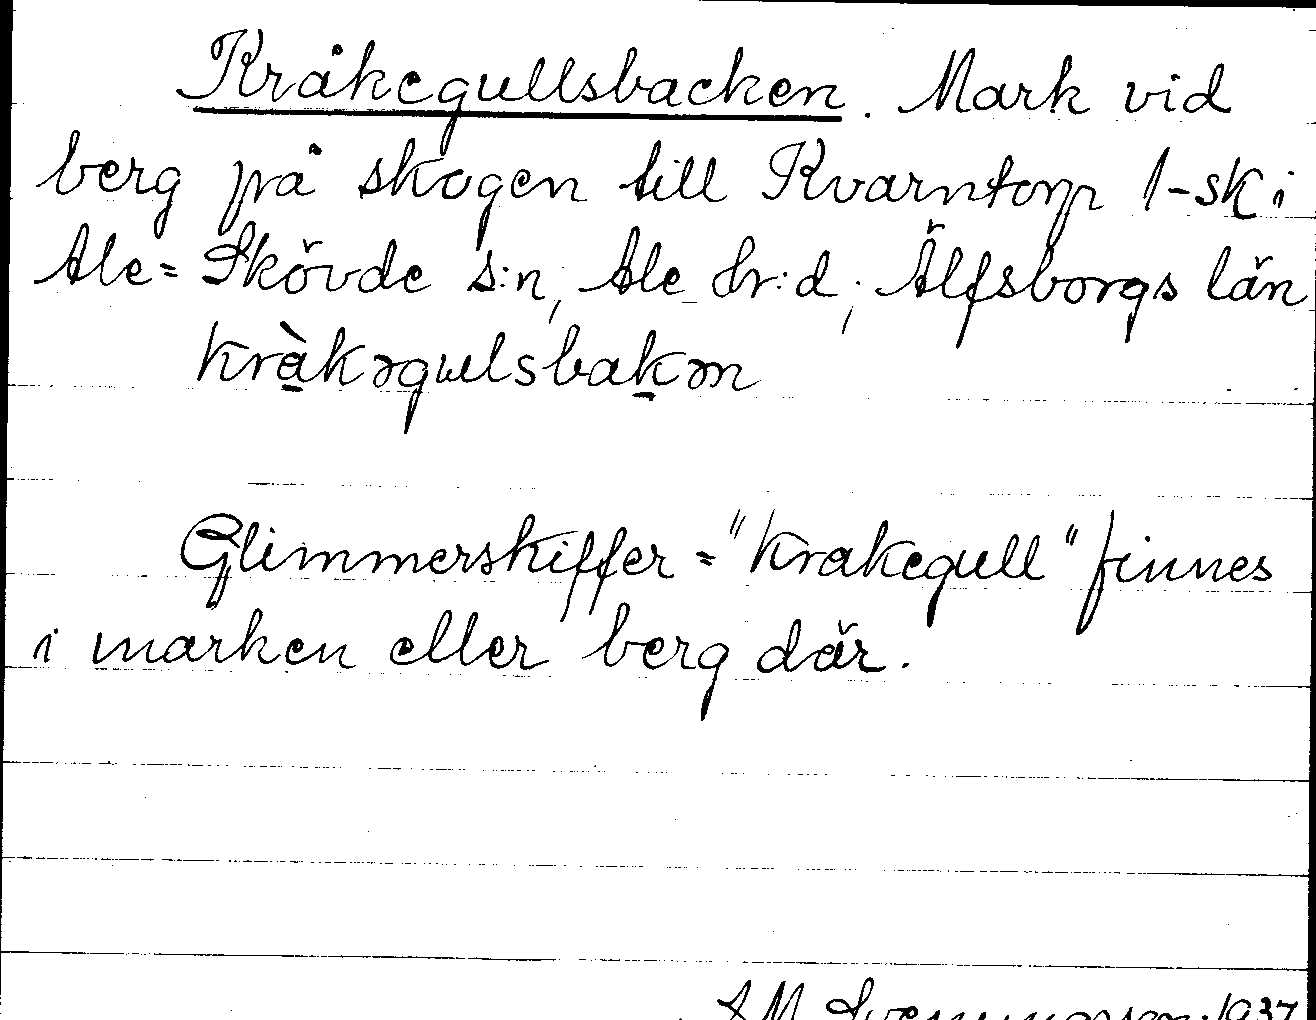 Kråkegullsbacken. Mark vid
berg på skogen till Kvarntorp 1-sk i
Ale=Skövde s:n, Ale hr:d; Älfsborgs län
kràkəgulsbakən
Glimmerskiffer = "krakegull" finnes
i marken eller berg där.
1937